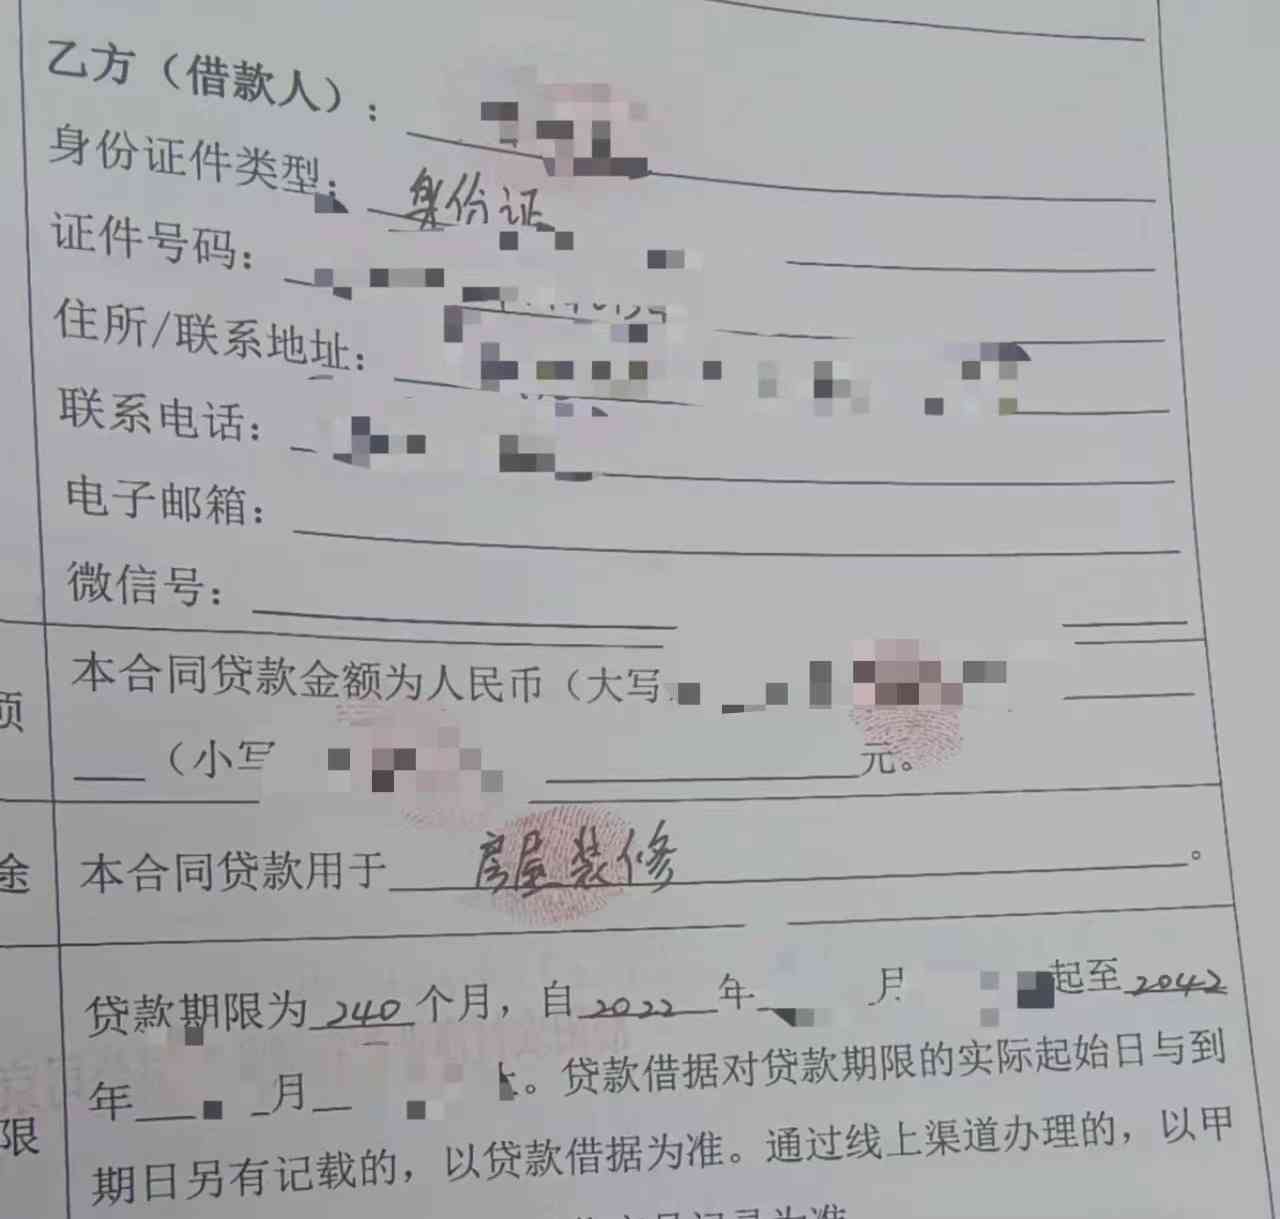 乙方（借款人）：
身份证件类型：身份证
证件号码：
住所/联系地址：
联系电话：
电子邮箱：
微信号：
项 本合同贷款金额为人民币（大写
（小写 元。
途 本合同贷款用于房屋装修。
贷款期限为240个月，自2022年 月 起至2042
年 月 。贷款借据对贷款期限的实际起始日与到
限 期日另有记载的，以贷款借据为准。通过线上渠道办理的，以甲